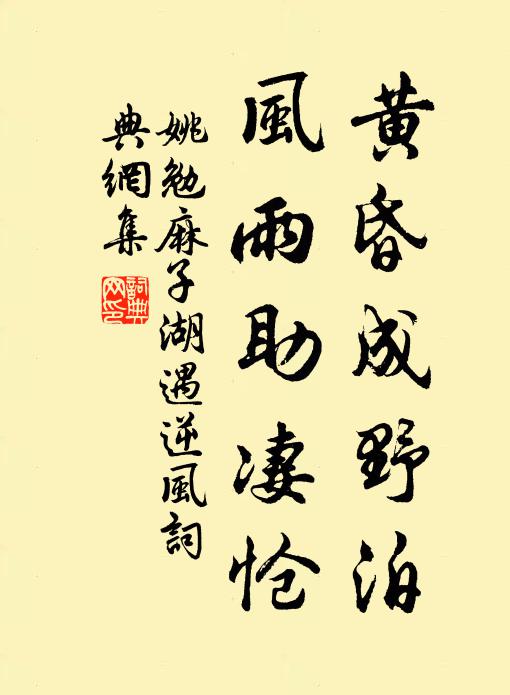 黃昏成野泊
風雨助凄愴
姚勉麻子湖遇逆風詞
典網集
詞典網印